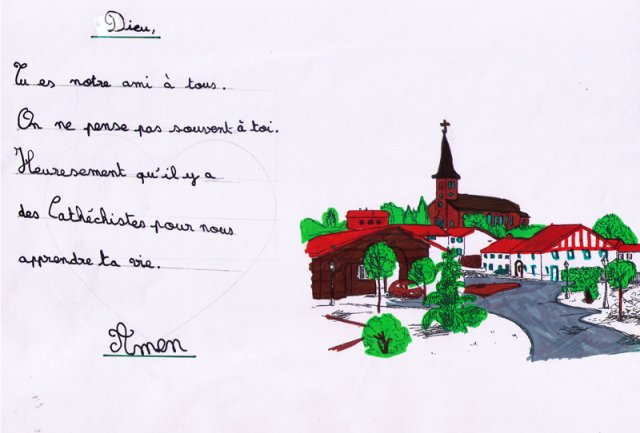 Dieu,
Tu es notre ami à tous.
On ne pense pas souvent à toi.
Heuresement qu'il y a
des Cathéchistes pour nous
apprendre ta vie.
Amen